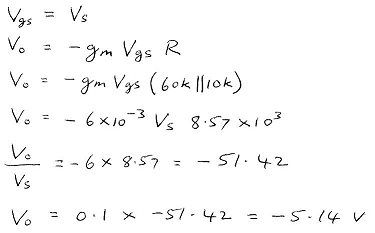 Vgs = Vs
Vo = - gm Vgs R
Vo = - gm Vgs (60k || 10k)
Vo = - 6 x 10^-3 Vs 8.57 x 10^3
Vo/Vs = - 6 x 8.57 = - 51.42
Vo = 0.1 x -51.42 = - 5.14 V